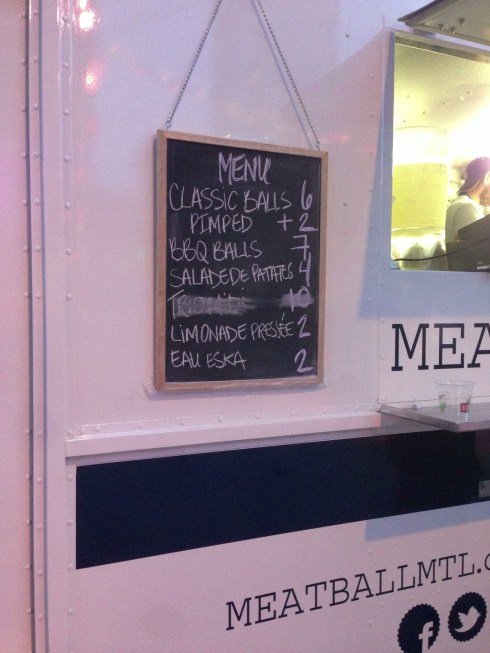 MENU
CLASSIC BALLS 6
PIMPED +2
BBQ BALLS 7
SALADE DE PATATES 4
10
LIMONADE PRESSÉE 2
EAU ESKA 2
MEA
MEATBALLMTL.
f